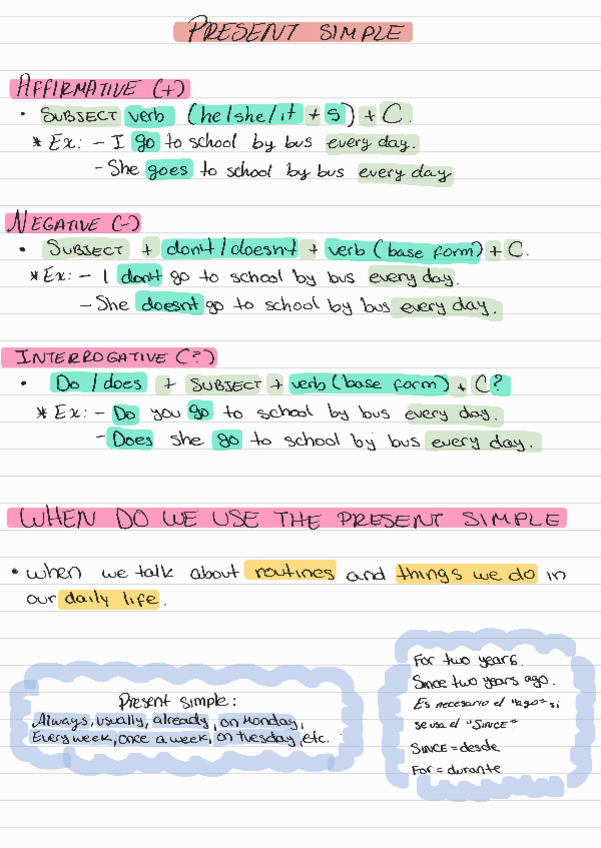 PRESENT SIMPLE
AFFIRMATIVE (+)
• SUBJECT verb (he/she/it + s) + C.
* Ex: - I go to school by bus every day.
- She goes to school by bus every day
NEGATIVE (-)
• SUBJECT + don't / doesn't + verb (base form) + C.
* Ex: - I don't go to school by bus every day.
- She doesn't go to school by bus every day.
INTERROGATIVE (?)
• Do / does + SUBJECT + verb (base form) + C?
* Ex: - Do you go to school by bus every day.
- Does she go to school by bus every day.
WHEN DO WE USE THE PRESENT SIMPLE
• when we talk about routines and things we do in
our daily life.
For two years.
Since two years ago.
Es necesario el "ago" si
se usa el "SINCE"
SINCE = desde
For = durante
Present simple:
Always, usually, already, on Monday,
Every week, once a week, on tuesday, etc.